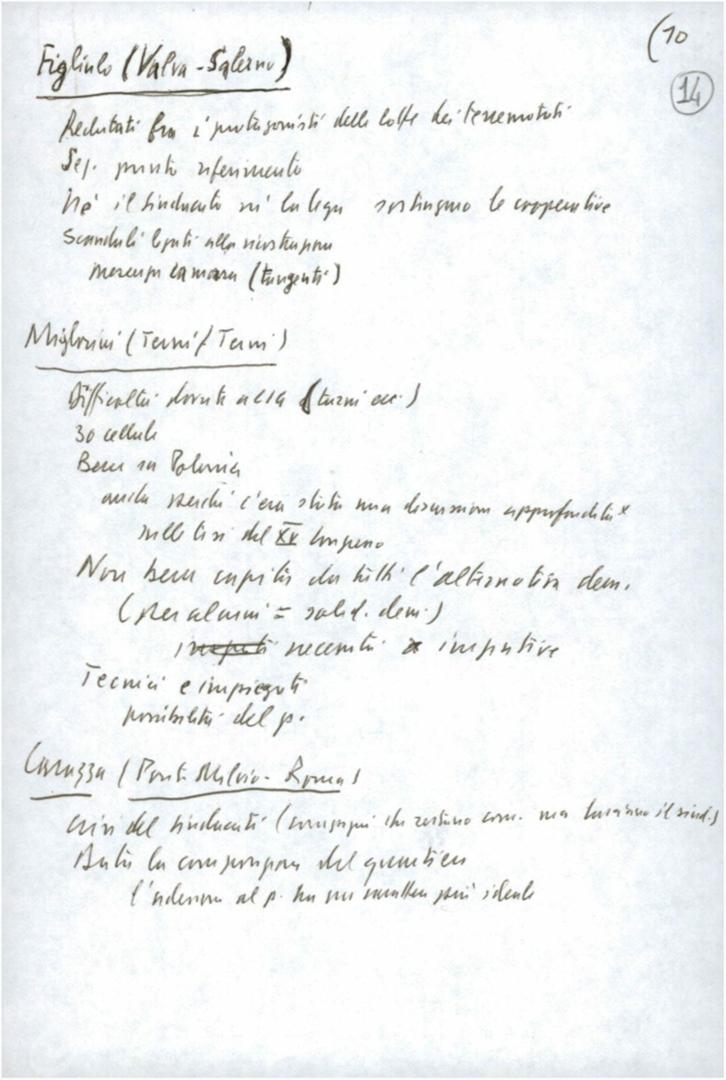 (10
14
Figliulo (Valva - Salerno)
Reclutati fra i protagonisti delle lotte dei terremotati
Sez. punto riferimento
Né il sindacato né la lega sostengono le cooperative
Scandali legati alla ricostruzione
(tangenti)
Migliorini (Terni / Terni)
Difficoltà dovute a (turni ecc.)
30 cellule
Bene su Polonia
anche perché c'era stata una discussione approfondita
sulle tesi del XV Congresso
Non bene capita da tutti l'alternativa dem.
(per alcuni = solid. dem.)
necessità
Tecnici e impiegati
possibilità del p.
(Ponte Milvio - Roma)
crisi del sindacato (compagni che restano com. ma lasciano il sind.)
la campagna del quartiere
l'adesione al p. ha un carattere più ideale